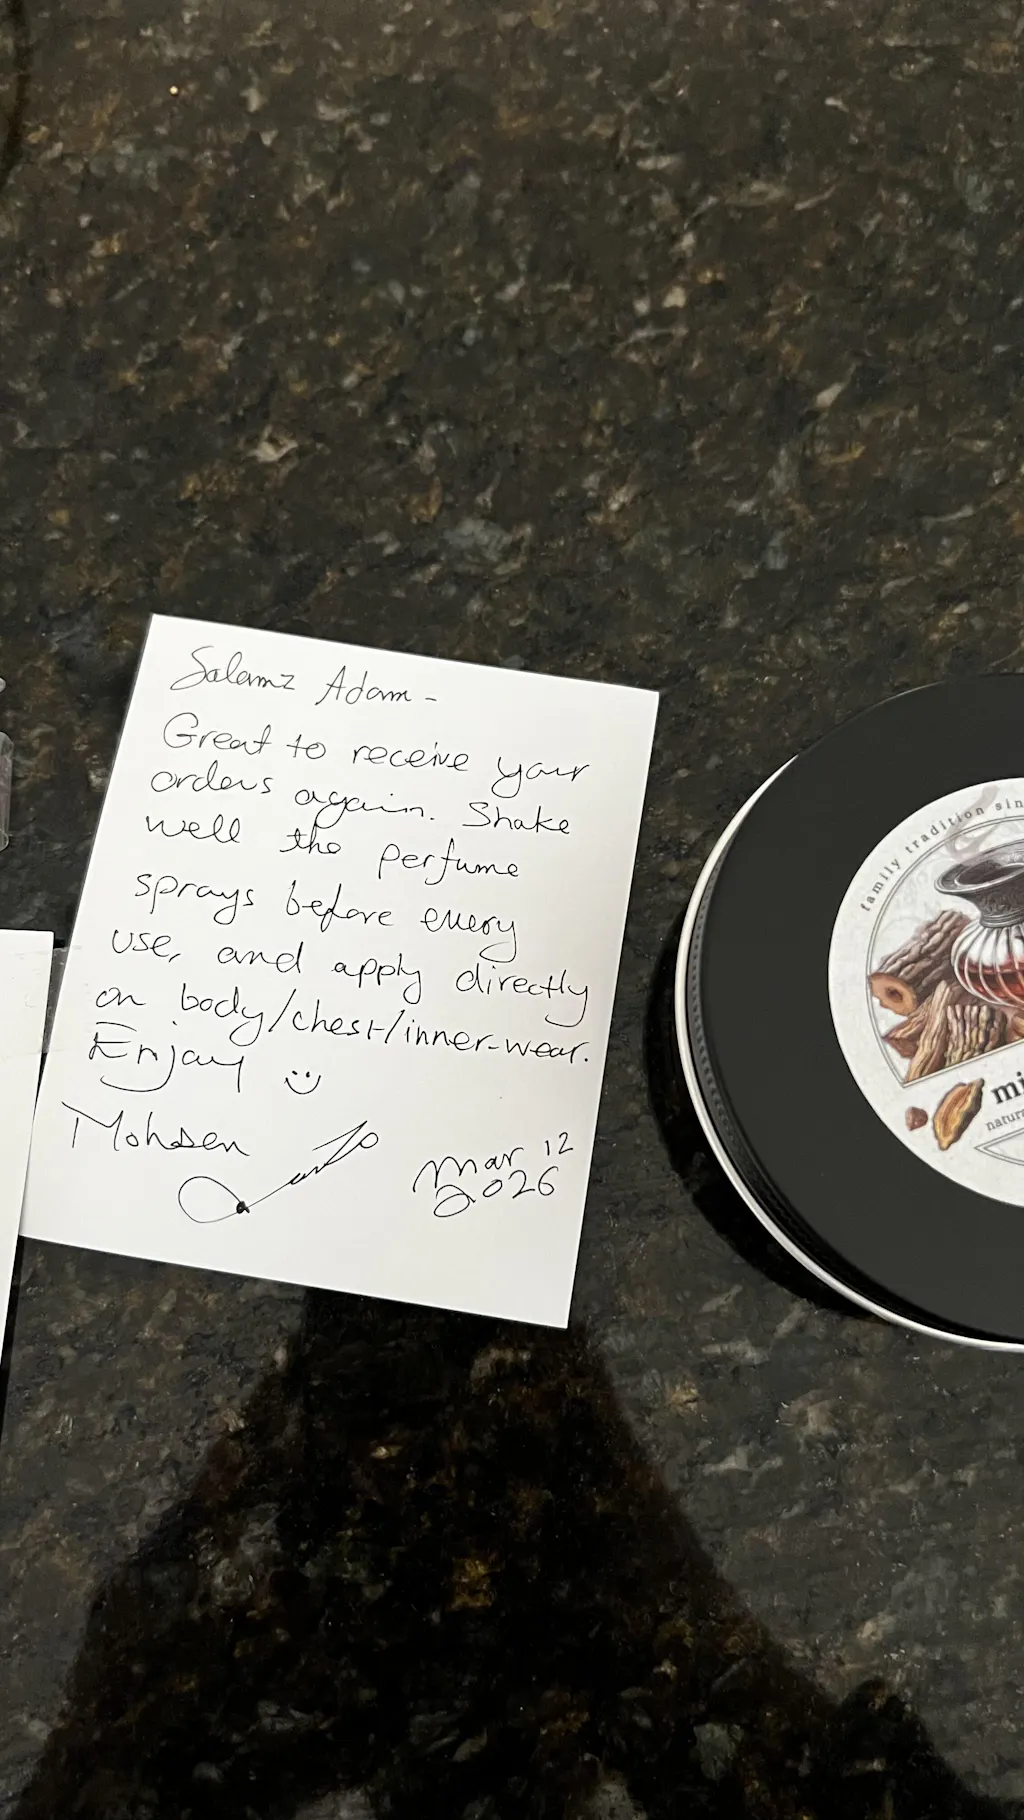 Salamz Adam -
Great to receive your
orders again. Shake
well the perfume
sprays before every
use, and apply directly
on body/chest/inner-wear.
Enjoy :)
Mohsen
Mar 12
2026
family tradition sin
mi
natura